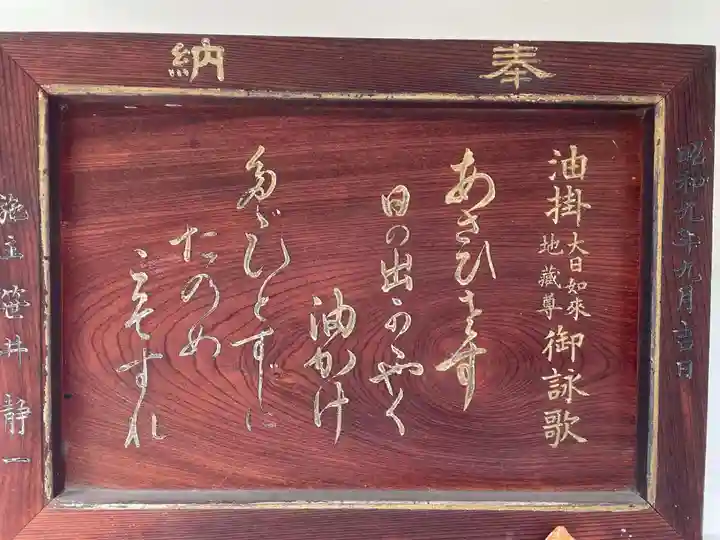 奉納
昭和九年九月吉日
油掛 大日如來 地藏尊 御詠歌
あさひさす
日の出かゞやく
油かけ
たゞひとすじに
たのめ
施主 笹井静一